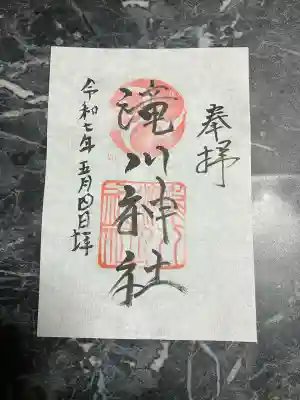 奉拝
滝川神社
令和七年五月四日拝